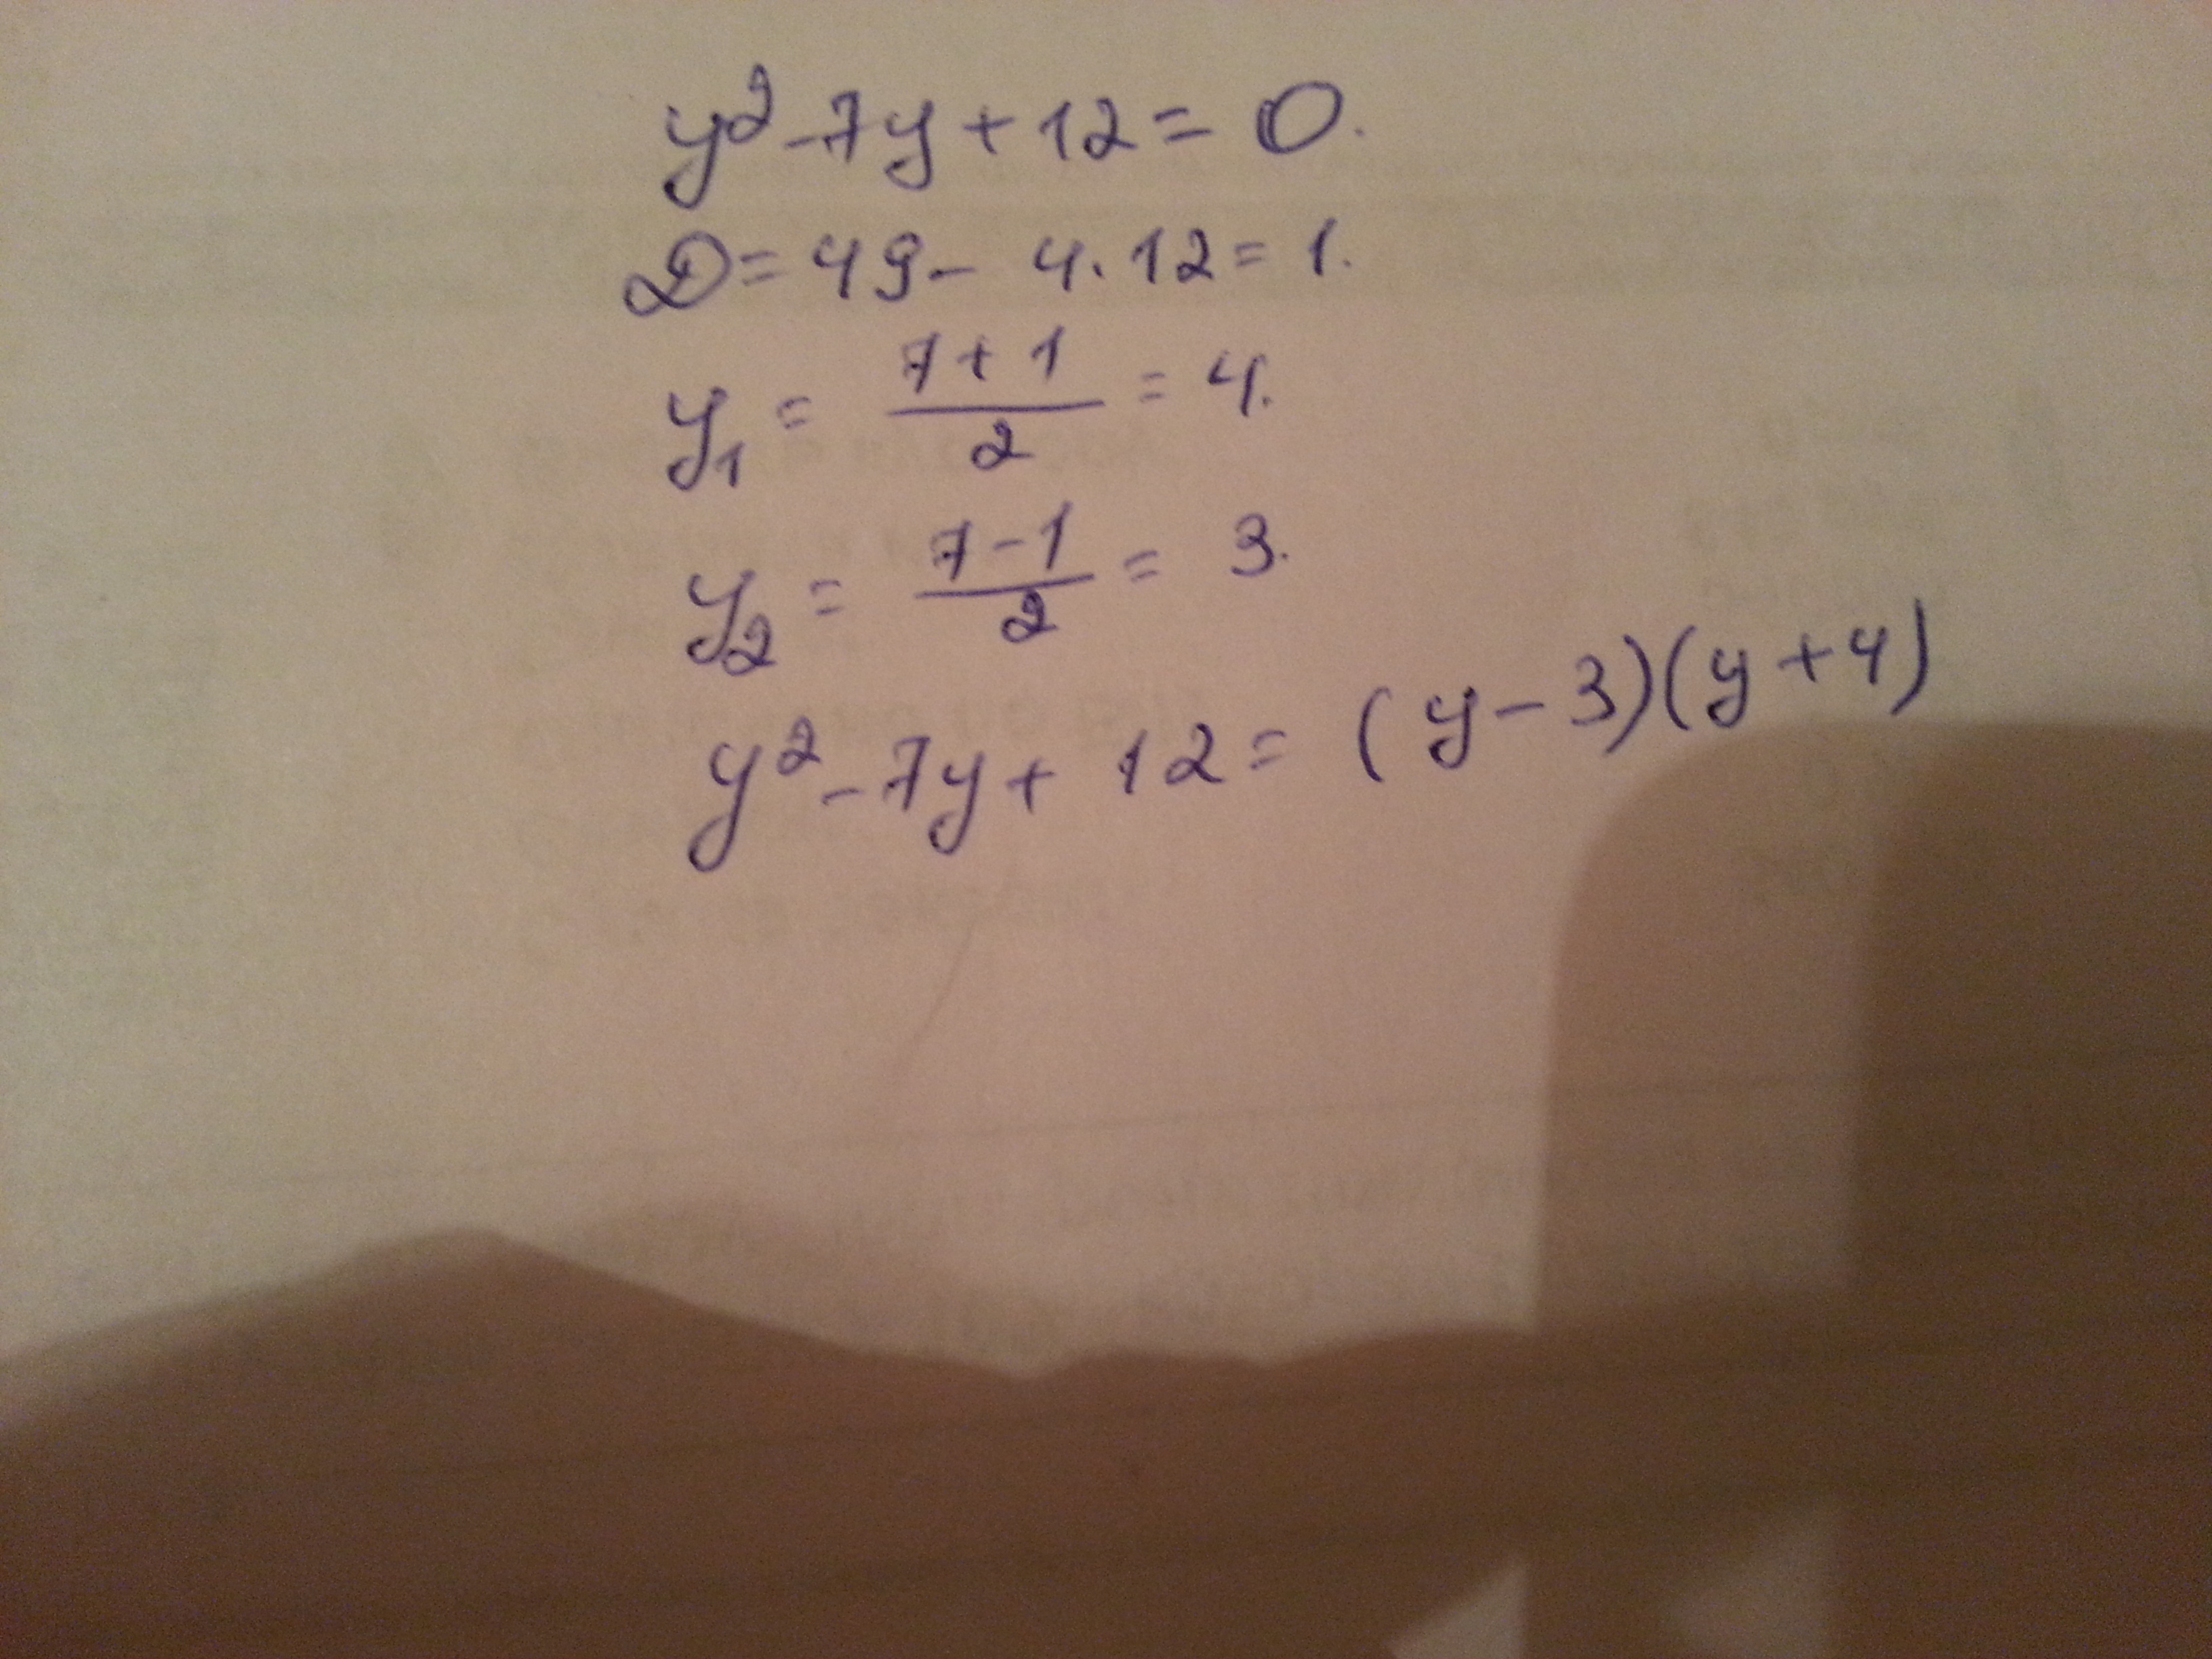 y² - 7y + 12 = 0.
D = 49 - 4 · 12 = 1.
y₁ = (7 + 1)/2 = 4.
y₂ = (7 - 1)/2 = 3.
y² - 7y + 12 = (y - 3)(y + 4)